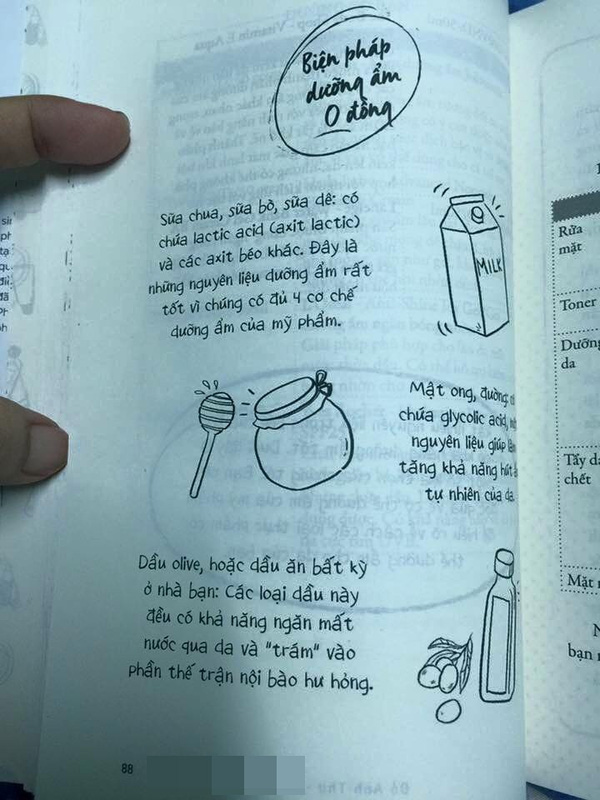 Biện pháp
dưỡng ẩm
0 đồng
Sữa chua, sữa bò, sữa dê: có
chứa lactic acid (axit lactic)
và các axit béo khác. Đây là
những nguyên liệu dưỡng ẩm rất
tốt vì chúng có đủ 4 cơ chế
dưỡng ẩm của mỹ phẩm.
MILK
Mật ong, đường:
chứa glycolic acid,
nguyên liệu giúp
tăng khả năng hút
tự nhiên của da.
Dầu olive, hoặc dầu ăn bất kỳ
ở nhà bạn: Các loại dầu này
đều có khả năng ngăn mất
nước qua da và "trám" vào
phần thế trận nội bào hư hỏng.
88
Rửa
mặt
Toner
Dưỡng
da
Tẩy da
chết
Mặt
bạn